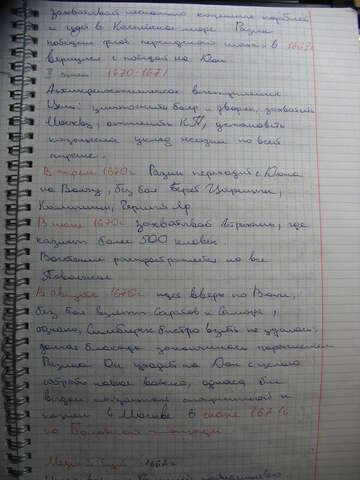 захватывает несколько кораблей
и уходит в Каспийское море. Разин
победил флот персидского шаха и в
вернулся с победой на Дон.
II этап 1670-1671
Антикрепостническое восстание
Цели: уничтожить бояр и дворян, захватить
Москву, отменить КП, установить
казацкий уклад жизни по всей
стране.
В апреле 1670г Разин переходит с Дона
на Волгу, без боя берет Царицын,
Камышин, Черный Яр
В июне 1670г захватывает Астрахань, где
казнит более 500 человек
Восстание распространяется на все
Поволжье
В августе 1670г идет вверх по Волге,
без боя взяты Саратов и Самара,
однако, Симбирск быстро взять не удалось,
осада закончилась поражением
Разина. Он уходит на Дон с целью
набрать новое войско, однако был
выдан казацкой старшиной и
казнен в Москве в 1671г
на Болотной площади
Медный бунт 1662г